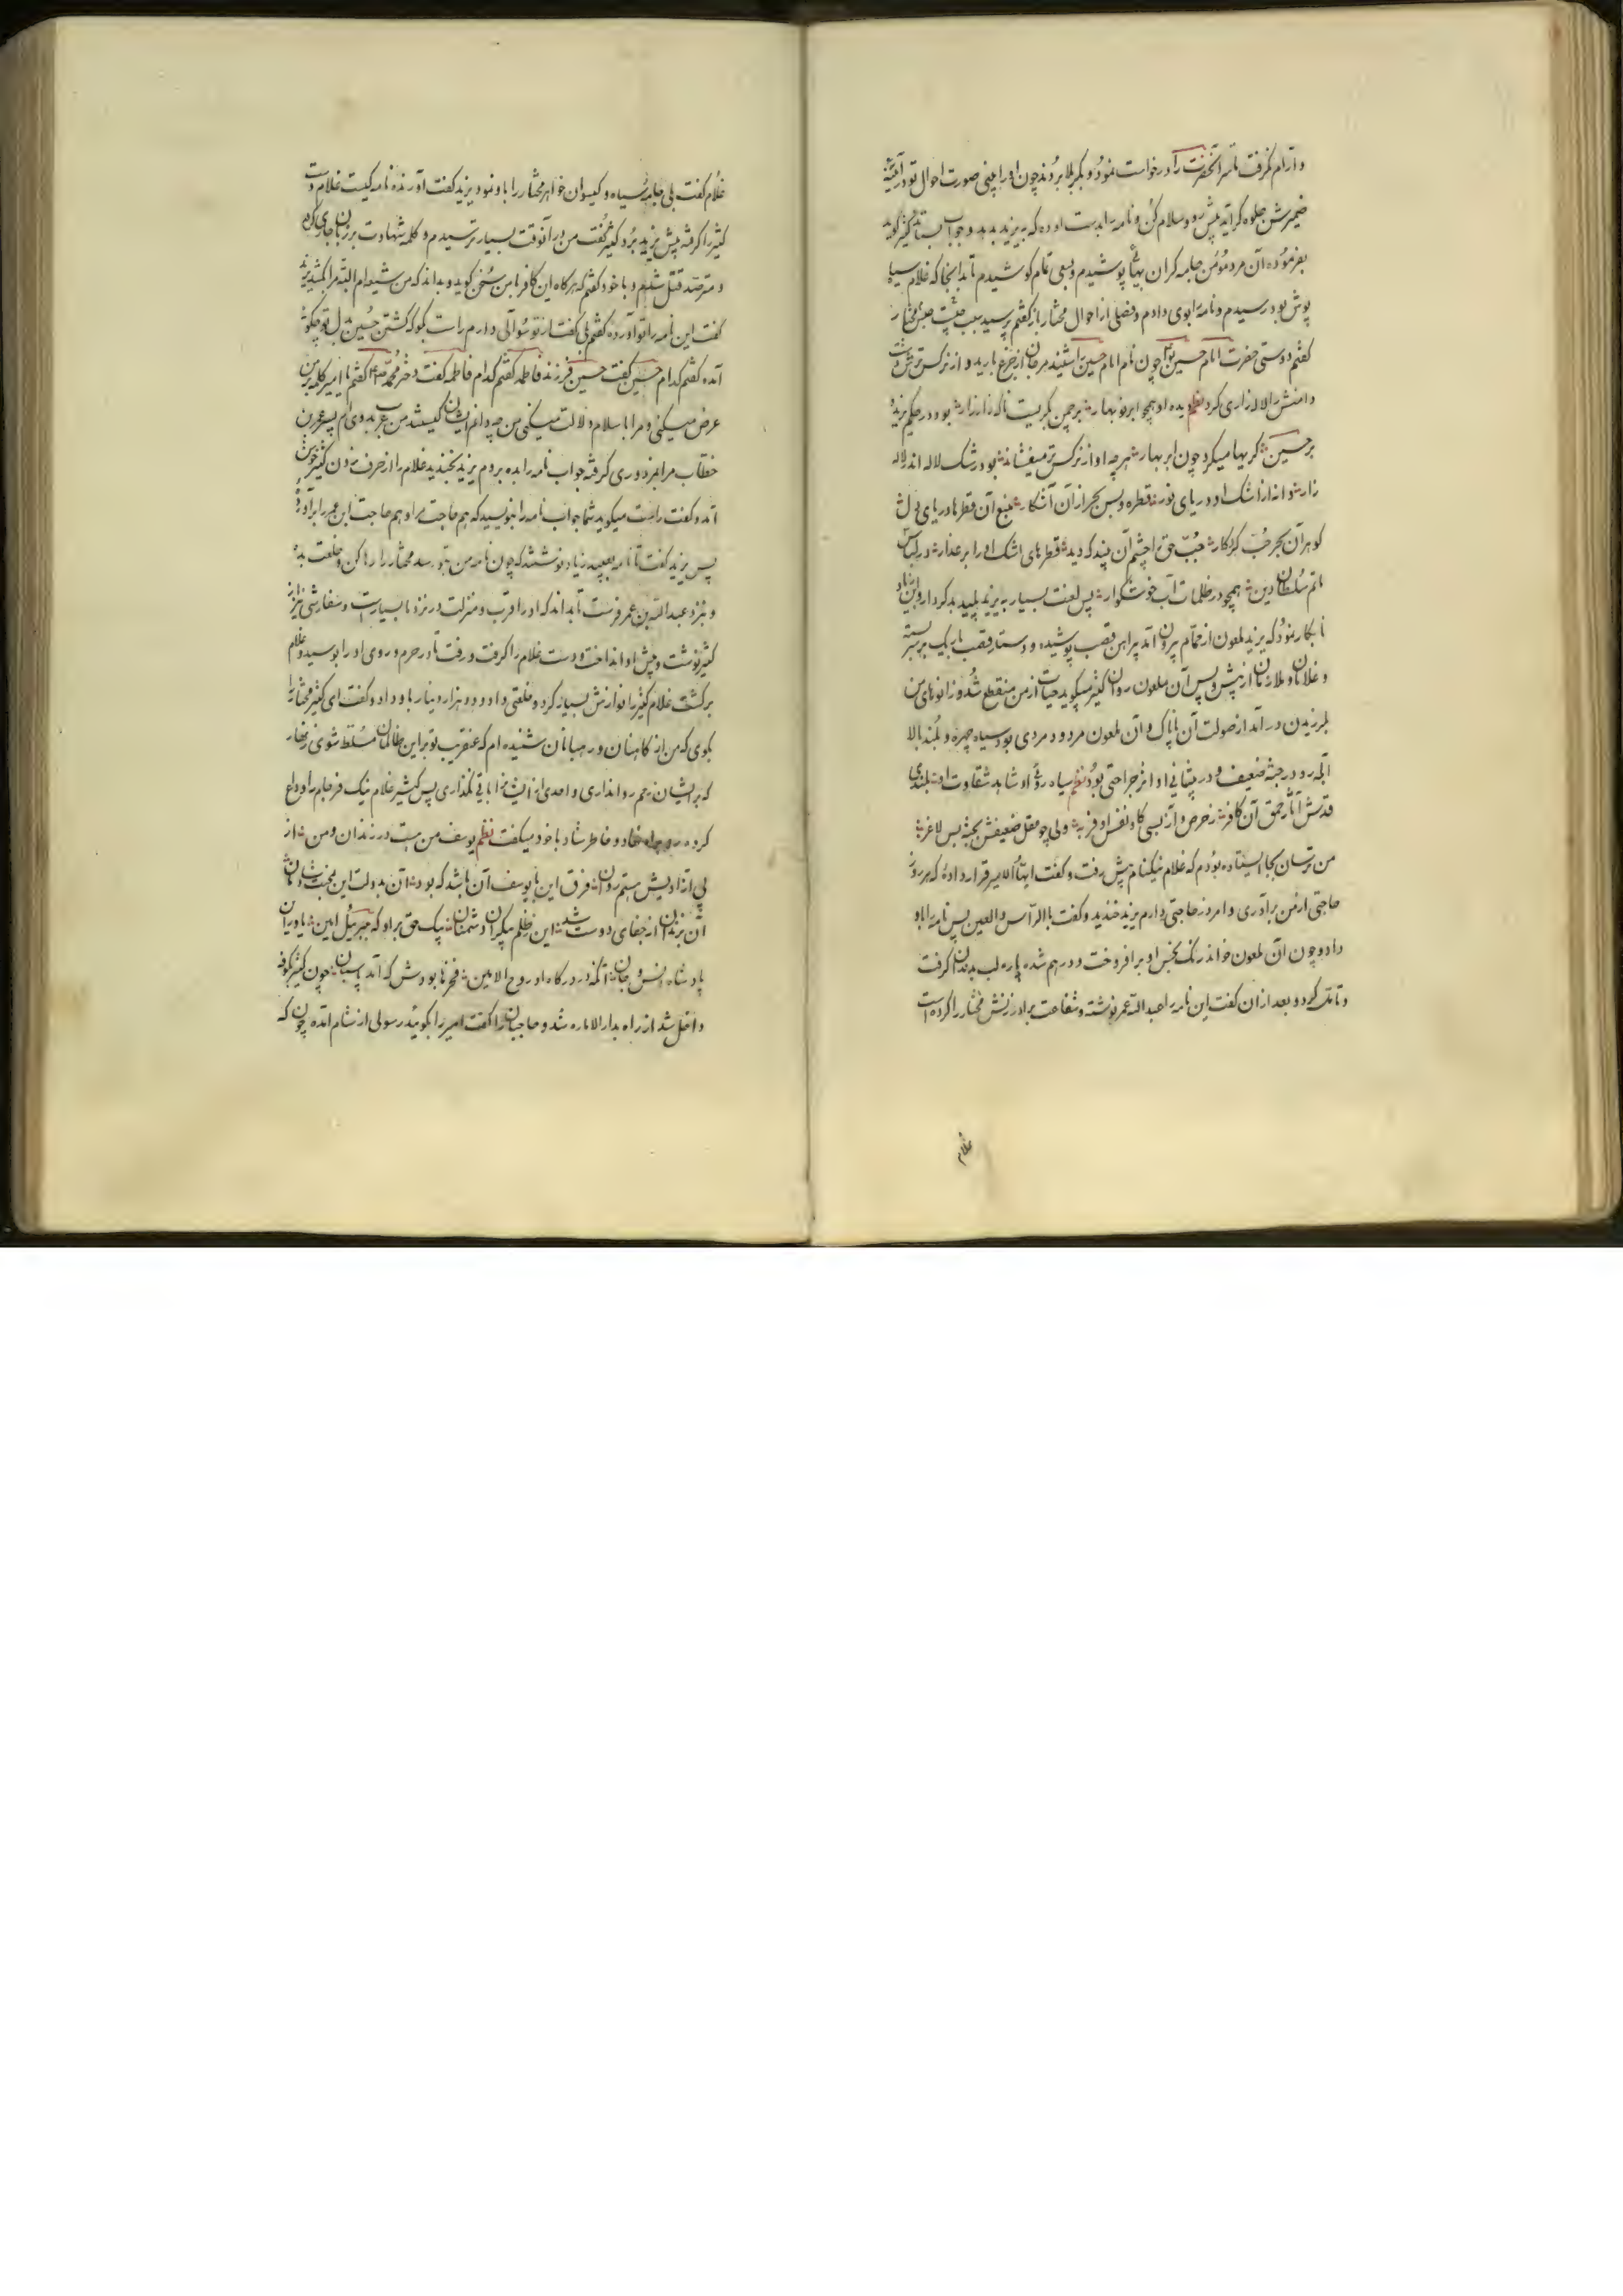 و آرام نگرفت تا سر آنحضرت را درخواست نمود و بکربلا بردند چون او را بینی صورت احوال تو در آئینه
ضمیرش جلوه گر آید پیش رو و سلام کن و نامه را بدست او ده که به یزید بدهد و جواب بستاند کثیر گوید
بفرموده آن مرد مؤمن جامه گران بهائی پوشیدم و بسعی تمام کوشیدم تا بدانجا که غلام سیاه
پوش بود رسیدم و نامه را بوی دادم و فصلی از احوال مختار باز گفتم پرسید سبب چیست حبس مختار
گفتم دوستی حضرت امام حسین چون نام امام حسین را شنید مرجان از جزع بارید و از نرگس
دامنش را لاله زاری کرد نظم دیده او همچو ابر نوبهار بر چمن بگریست ناگه زار زار بود در حکم یزید و
بر حسین گریها میکرد چون ابر بهار هر چه او از نرگس تر میفشاند بود رشک لاله اندر لاله
زار دانه از اشک او دریای نور قطره و بس بحر از آن آشکار منبع آن قطرها دریای دل
گوهر آن بحر حب کردگار حب حق را چشم آن بیند که دید قطرهای اشک او را بر عذار در لباس
ماتم سلطان دین همچو در ظلمات آب خوشگوار پس لعنت بسیار به یزید پلید بدکردار و ابن زیاد
نابکار نمود که یزید ملعون از حمام بیرون آمد پیراهن قصب پوشیده و دستار قصب باریک بر بسته
و غلامان و ملازمان از پیش و پس آن ملعون روان کثیر میگوید حیات از من منقطع شد و زانوهای من
بلرزیدن در آمد از صولت آن ناپاک و آن ملعون مردود مردی بود سیاه چهره و بلند بالا
آبله رو در جثه ضعیف و در پیشانی او اثر جراحتی بود نظم سیاه روئی او شاهد شقاوت او بلندی
قدش آثار حمق آن کافر ز حرص و آز بسی گاو نفس او فربه ولی چو عقل ضعیفش بجثه بس لاغر
من ترسان بجا ایستاده بودم که غلام نیکنام پیش رفت و گفت ایها الامیر قرار داده که هر روز
حاجتی از من بر آری و امروز حاجتی دارم یزید خندید و گفت بالرأس والعین پس نامه را باو
داد و چون آن ملعون خواند رنگ نحس او بر افروخت و درهم شده پاره لب بدندان گرفت
و تأمل کرد و بعد از آن گفت این نامه را عبدالله عمر نوشته و شفاعت برادر زنش مختار را کرده است
غلام
غلام گفت بلی جامه سیاه و گیسوان خواهر مختار را باو نمود یزید گفت آورنده نامه کیست غلام دست
کثیر را گرفته پیش یزید برد کثیر گفت من در آنوقت بسیار ترسیدم و کلمه شهادت بر زبان جاری کردم
و مترصد قتل شدم و با خود گفتم که هرگاه این کافر با من سخن گوید و بداند که من شیعه ام البته مرا بکشد یزید
گفت این نامه را تو آورده گفتم بلی گفت از تو سؤالی دارم راست بگو که کشتن حسین بر دل تو چگونه
آمده گفتم کدام حسین گفت حسین فرزند فاطمه گفتم کدام فاطمه گفت دختر محمد گفتم یا امیر کلمه بر من
عرض میکنی و مرا باسلام دلالت میکنی من چه دانم ایشان کیستند من عرب بدوی ام پسر عمر بن
خطاب مرا بمزدوری گرفته جواب نامه را بده بروم یزید بخندید غلام را از حرف زدن کثیر خوش
آمد و گفت راست میگوید شما جواب نامه را بنویسید که هم حاجت مرا و هم حاجت ابن عمر را برآورد
پس یزید گفت تا نامه بعبید زیاد نوشتند که چون نامه من بتو رسد مختار را رها کن و خلعت بده
و نزد عبدالله بن عمر فرست تا بداند که او را قرب و منزلت در نزد ما بسیارست و سفارشی نیز از
کثیر نوشت و پیش او انداخت و دست غلام را گرفت و رفت تا در حرم و روی او را بوسید و غلام
برگشت غلام کثیر را نوازش بسیار کرد و خلعتی داد و دو هزار دینار باو داد و گفت ای کثیر مختار را
بگوی که من از کاهنان و رهبانان شنیده ام که عنقریب تو بر این ظالمان مسلط شوی زنهار
که بر ایشان رحم روا نداری و احدی از ایشان را باقی نگذاری پس کثیر غلام نیک فرجام را وداع
کرده رو براه نهاد و خاطر شاد با خود میگفت نظم یوسف من هست در زندان و من از
پی آزادیش هستم روان فرق این با یوسف آن باشد که بود آن بدولت این بمحنت شادمان
آن بزندان از جفای دوست شد این ز ظلم بیکران دشمنان پیک حق بر او که جبرئیل امین یاوران
پادشاه انس و جان آنکه در درگاه او روح الامین فخرها بودش که آمد پاسبان چون کثیر بکوفه
داخل شد از راه بدار الاماره شد و حاجبان را گفت امیر را بگوئید رسولی از شام آمده چون که